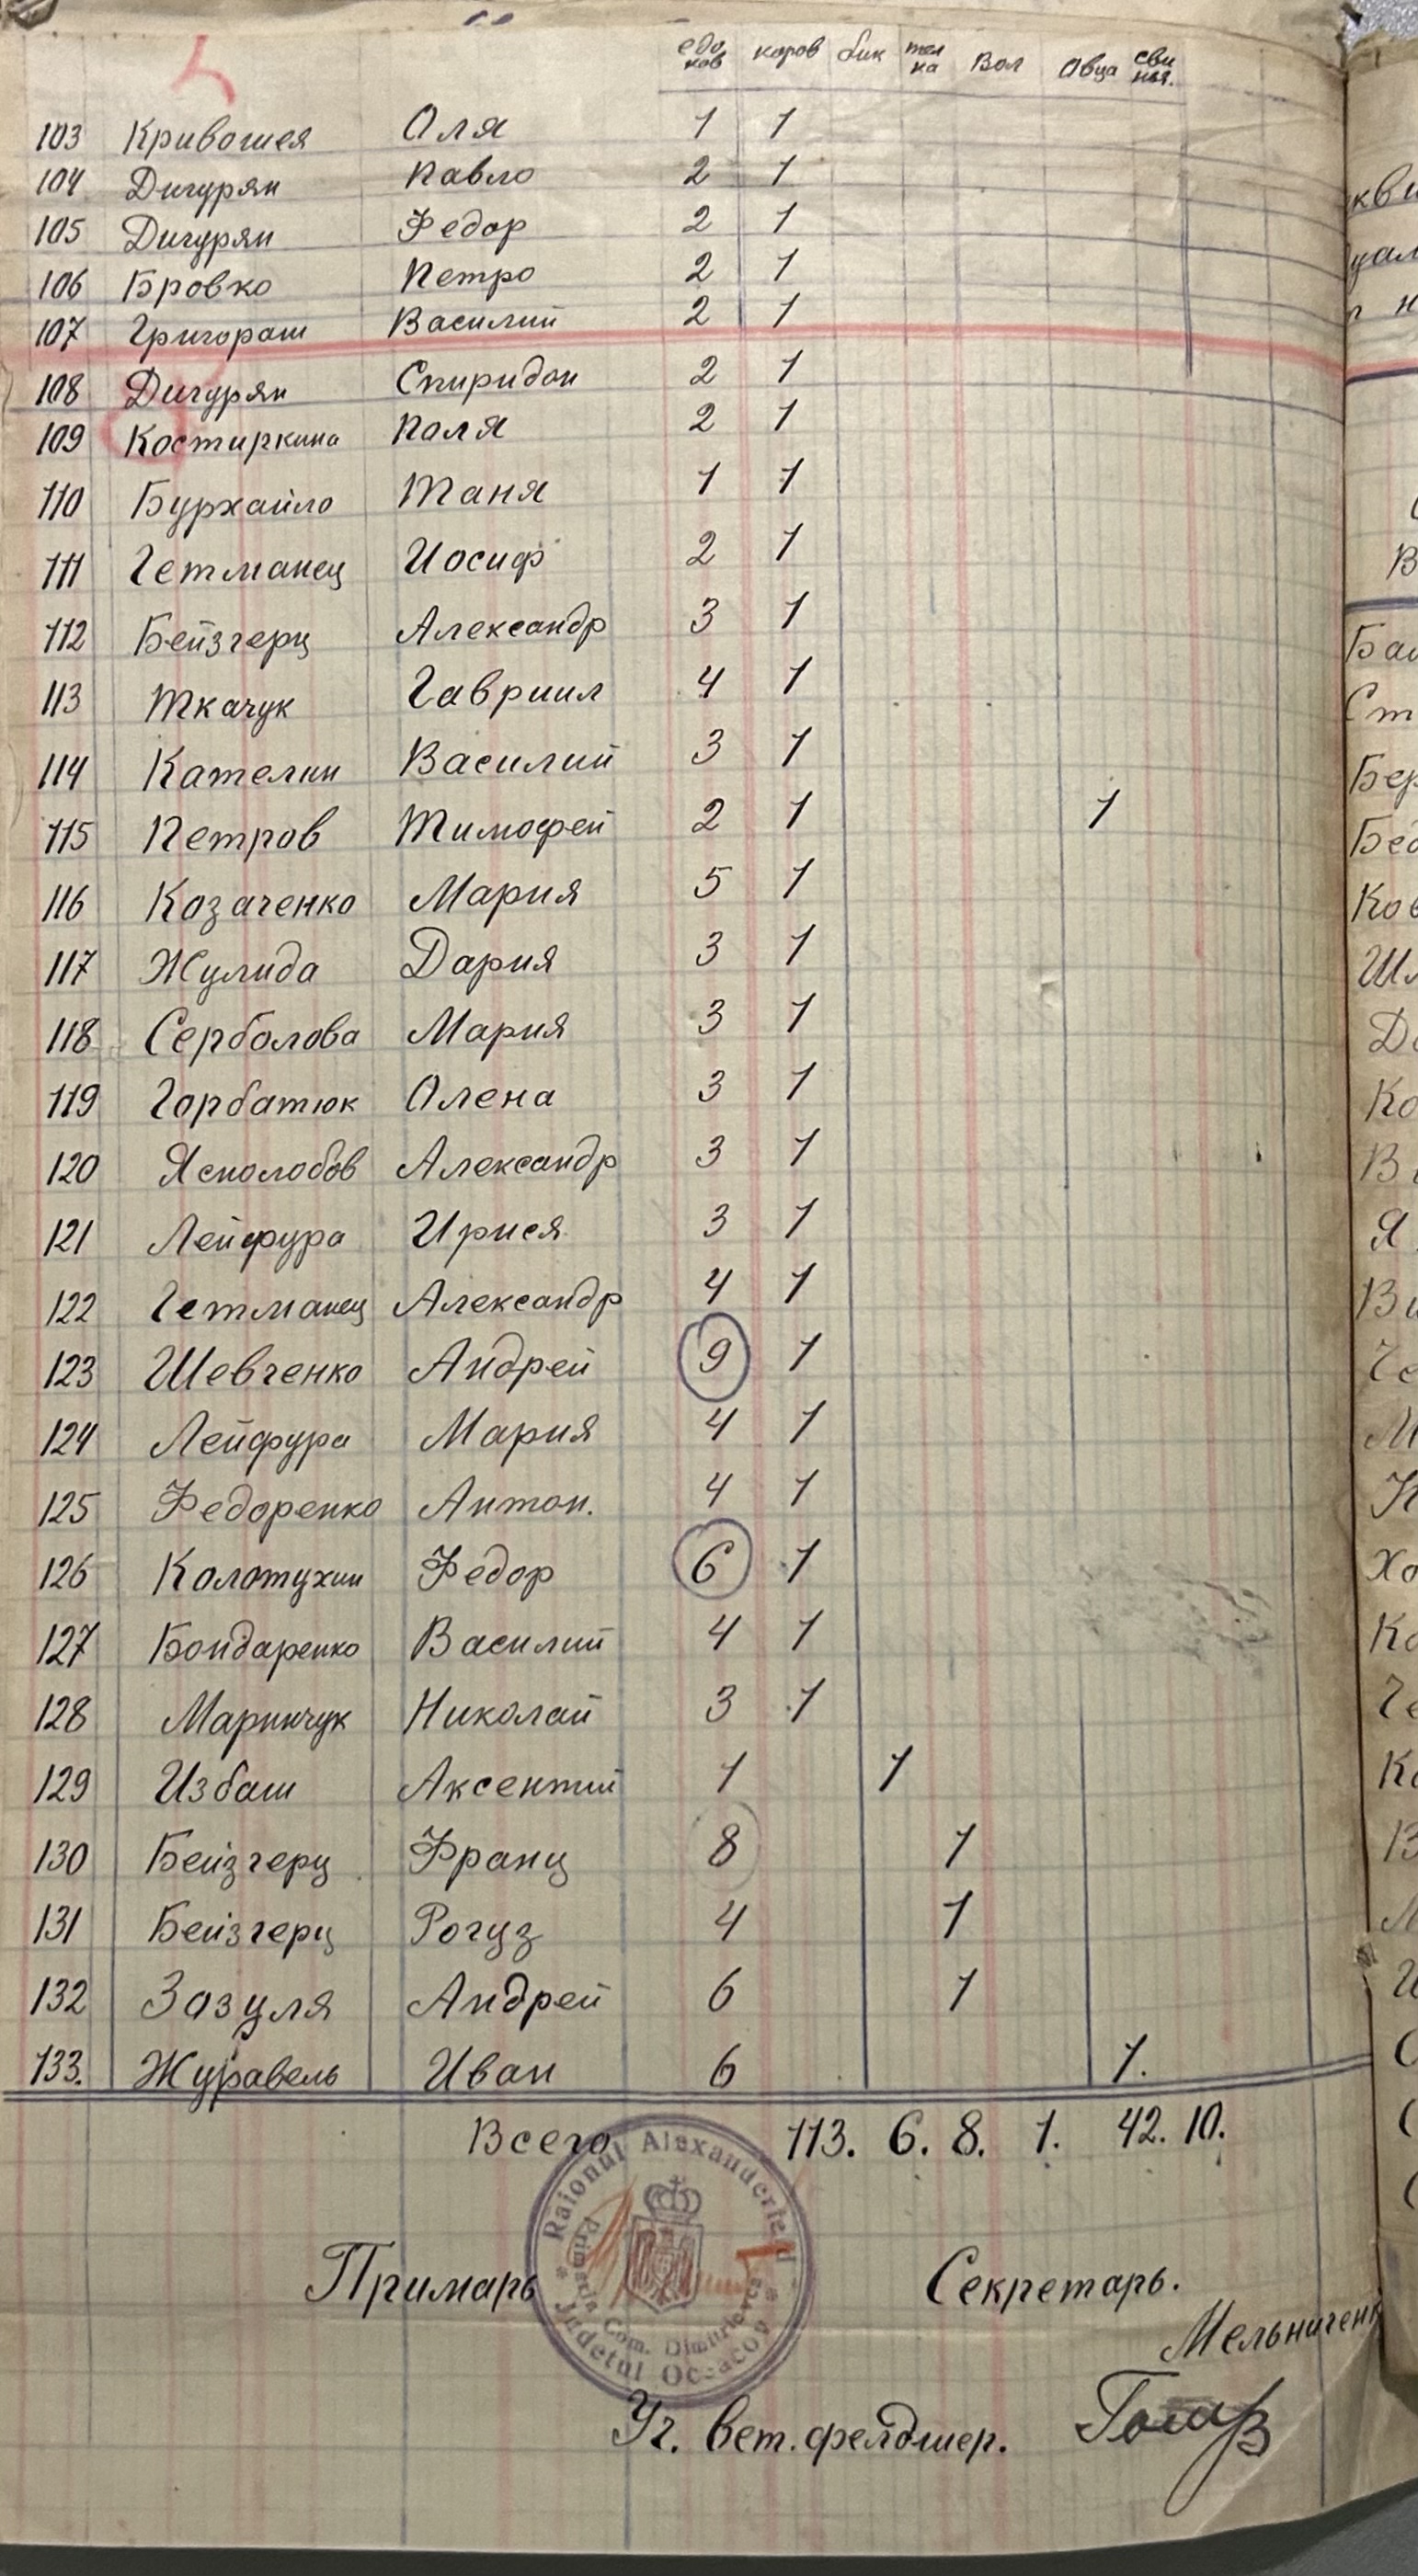 едоков коров бик телка Вол Овца свинья.
103 Кривошея Оля 1 1
104 Дигурян Павло 2 1
105 Дигурян Федор 2 1
106 Бровко Петро 2 1
107 Григораш Василий 2 1
108 Дигурян Спиридон 2 1
109 Костиркина Поля 2 1
110 Бурхайло Таня 1 1
111 Гетманец Иосиф 2 1
112 Бейзгерц Александр 3 1
113 Ткачук Гавриил 4 1
114 Кателин Василий 3 1
115 Петров Тимофей 2 1 1
116 Козаченко Мария 5 1
117 Жулида Дария 3 1
118 Серболова Мария 3 1
119 Горбатюк Олена 3 1
120 Яснолобов Александр 3 1
121 Лейфура Ирися 3 1
122 Гетманец Александр 4 1
123 Шевченко Андрей 9 1
124 Лейфура Мария 4 1
125 Федоренко Антон. 4 1
126 Колотухин Федор 6 1
127 Бондаренко Василий 4 1
128 Маринчук Николай 3 1
129 Избаш Аксентий 1 1
130 Бейзгерц Франц 8 1
131 Бейзгерц Рогуз 4 1
132 Зозуля Андрей 6 1
133. Журавель Иван 6 1.
Всего 113. 6. 8. 1. 42. 10.
Raionul Alexanderfeld
Primaria Com. Dimitrievca
Judetul Oceacov
Примарь Секретарь.
Мельниченк
Уч. вет. фельдшер.